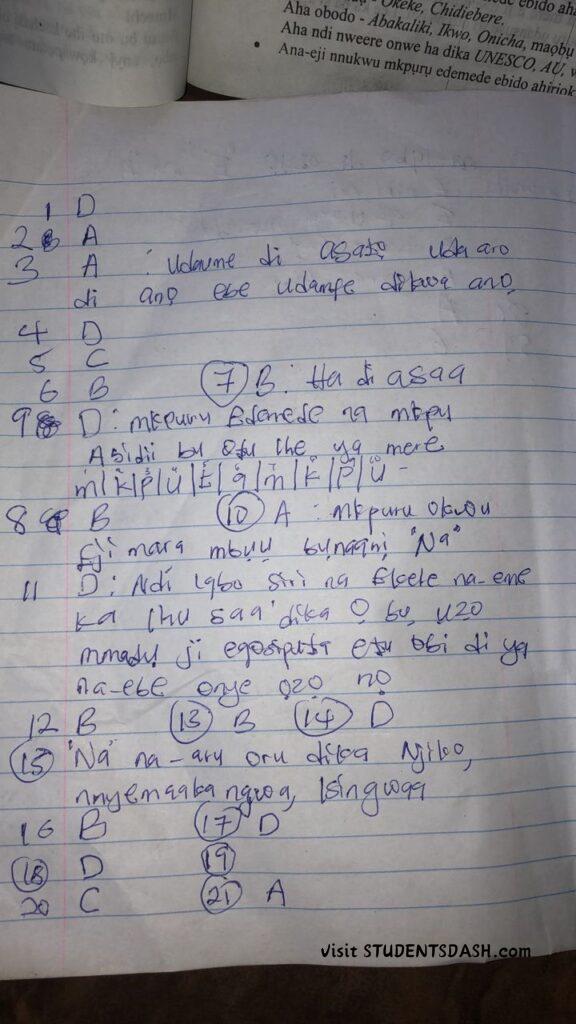 Okeke, Chidiebere.
Aha obodo - Abakaliki, Ikwo, Onicha, maọbụ
Aha ndi nweere onwe ha dika UNESCO, AU,
Ana-eji nnukwu mkpụrụ edemede ebido ahiriok
1 D
2 A
3 A : Udaume di asatọ udaaro
di anọ ebe udamfe dikwa anọ
4 D
5 C
6 B (7) B. Ha di asaa
9 D : mkpuru Edemede na mkpu
Abidii bu Otu ihe ya mere
m|k|p|u|E|q|m|k|p|u
8 B (10) A : mkpuru Okwu
Eji mara mbụụ bụnaanị "Na"
11 D : Ndi Igbo siri na Ekele na-eme
ka ihu saa dika Ọ bụ ụzọ
mmadụ ji egosiputa etu obi di ya
na-ebe onye ọzọ nọ
12 B (13) B (14) D
(15) "Na" na-arụ ọrụ dika Njikọ,
nnyemaaka ngwa, Isingwaa
16 B (17) D
(18) D (19)
20 C (21) A
visit STUDENTSDASH.com